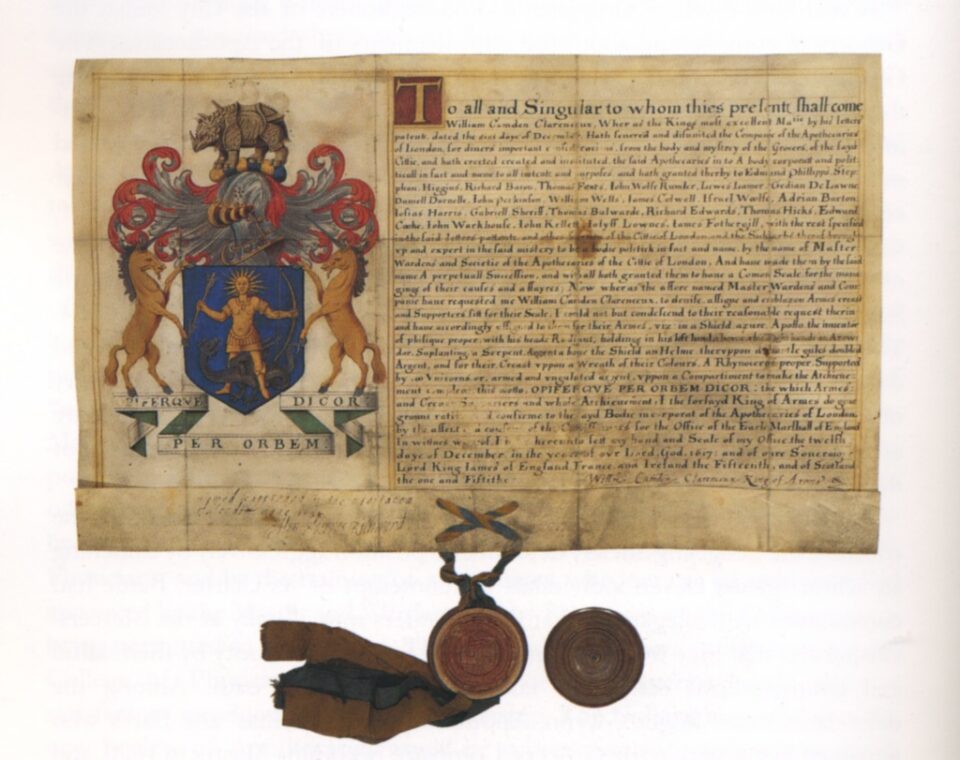 To all and Singular to whom thies presents shall come
William Camden Clarenceux, Wher as the Kings most excellent Matie by his letters
patents, dated the day of December. Hath seuered and disunited the Companie of the Apothecaries
of London, for diuers important from the body and mystery of the Grocers, of the sayd
Cittie, and hath erected created and instituted, the said Apothecaries in to A body corporatt and polit-
ticall in fact and name to all intents and purposes and hath granted therby to Edmund Phillipps Step-
phan. Higgins, Richard Bacon, Thomas Fones, Iohn Wolfe Rumler, Lewes Lamer. Gedian De Lawne
Daniell Darnelle, Iohn Perkinson, William Wells, Iames Colwell, Israel Woolfe, Adrian Barton
Iosias Harris, Gabriell Sheriff, Thomas Bulwarde, Richard Edwards, Thomas Hicks, Edward
Cooke, Iohn Warkhouse, Iohn Kellett Lownes, Iames Fothergill, with the rest specified
in the said letters pattents, and other of the Cittie of London and the Suburbs therof brought
vp and expert in the said mistery to be A bodie politick in fact and name, by the name of Master
Wardens and Societie of the Apothecaries of the Cittie of London, And haue made them by the said
name A perpetuall Succession, and withall hath granted them to haue a Comon Seale for the mana
ging of their causes and affayres; Now wheras the affore named Master Wardens and Com
panie haue requested me William Camden Clarenceux, to deuise, assigne and emblazon Armes creast
and Supporters fitt for their Seale, I could not but condescend to their reasonable request therin
and haue accordingly assigned to them for their Armes, viz: in a Shield azure, Apollo the inuentor
of phisique proper, with his heade Radiant, holdinge in his left hand a bowe, and an Arrow
dor, Suplanting a Serpent Argent aboue the Shield an Helme thervppon a mantle gules doubled
Argent, and for their Creast vppon a Wreath of their Colours, A Rhynoceros proper, Supported
by two Vnicorns or, armed and vngulated argent, vppon a Compartiment to make the Atcheue-
ment compleat this motto, OPIFERQVE PER ORBEM DICOR: the which Armes
and Creast Supporters and whole Atchieuement: I the forsayd King of Armes do giue
graunt ratifie and confirme to the sayd Bodie incorporat of the Apothecaries of London,
by the assent & consent of the Commissioners for the Office of the Earle Marshall of England
In witnes wherof, I haue hereunto sett my hand and Seale of my Office the twelfth
daye of December, in the yeare of our Lord God. 1617; and of oure Soueraigne
Lord King Iames of England France and Ireland the Fifteenth, and of Scotland
the one and Fiftithe
Willm Camden Clarenceux King of Armes
OPIFERQVE DICOR
PER ORBEM